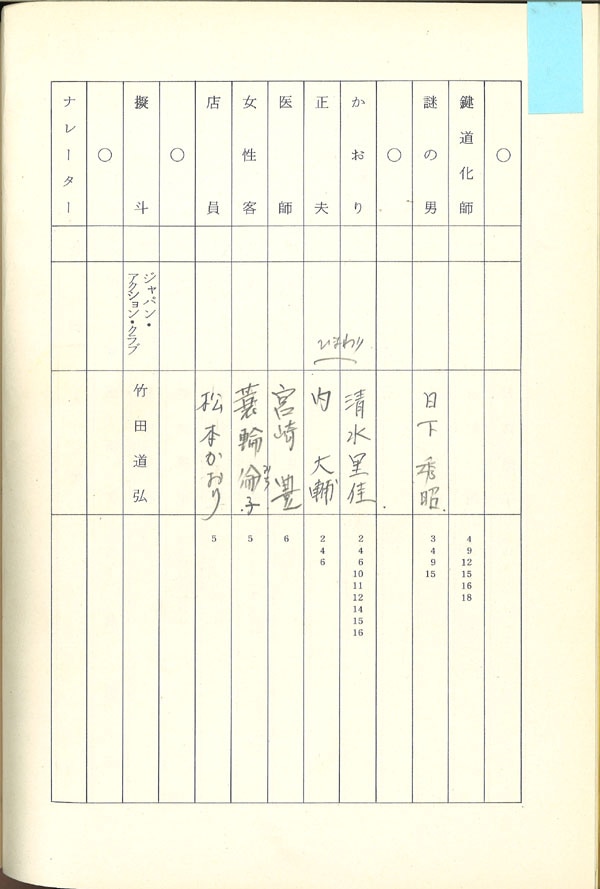 ○
鍵道化師
4
9
12
15
16
18
謎の男
日下秀昭
3
4
9
15
○
かおり
清水里佳
2
4
6
10
11
12
14
15
16
正夫
ひまわり
内大輔
2
4
6
医師
宮崎豊
6
女性客
蓑輪倫子
みち
5
店員
松本かおり
5
○
擬斗
ジャパン・
アクション・クラブ
竹田道弘
○
ナレーター